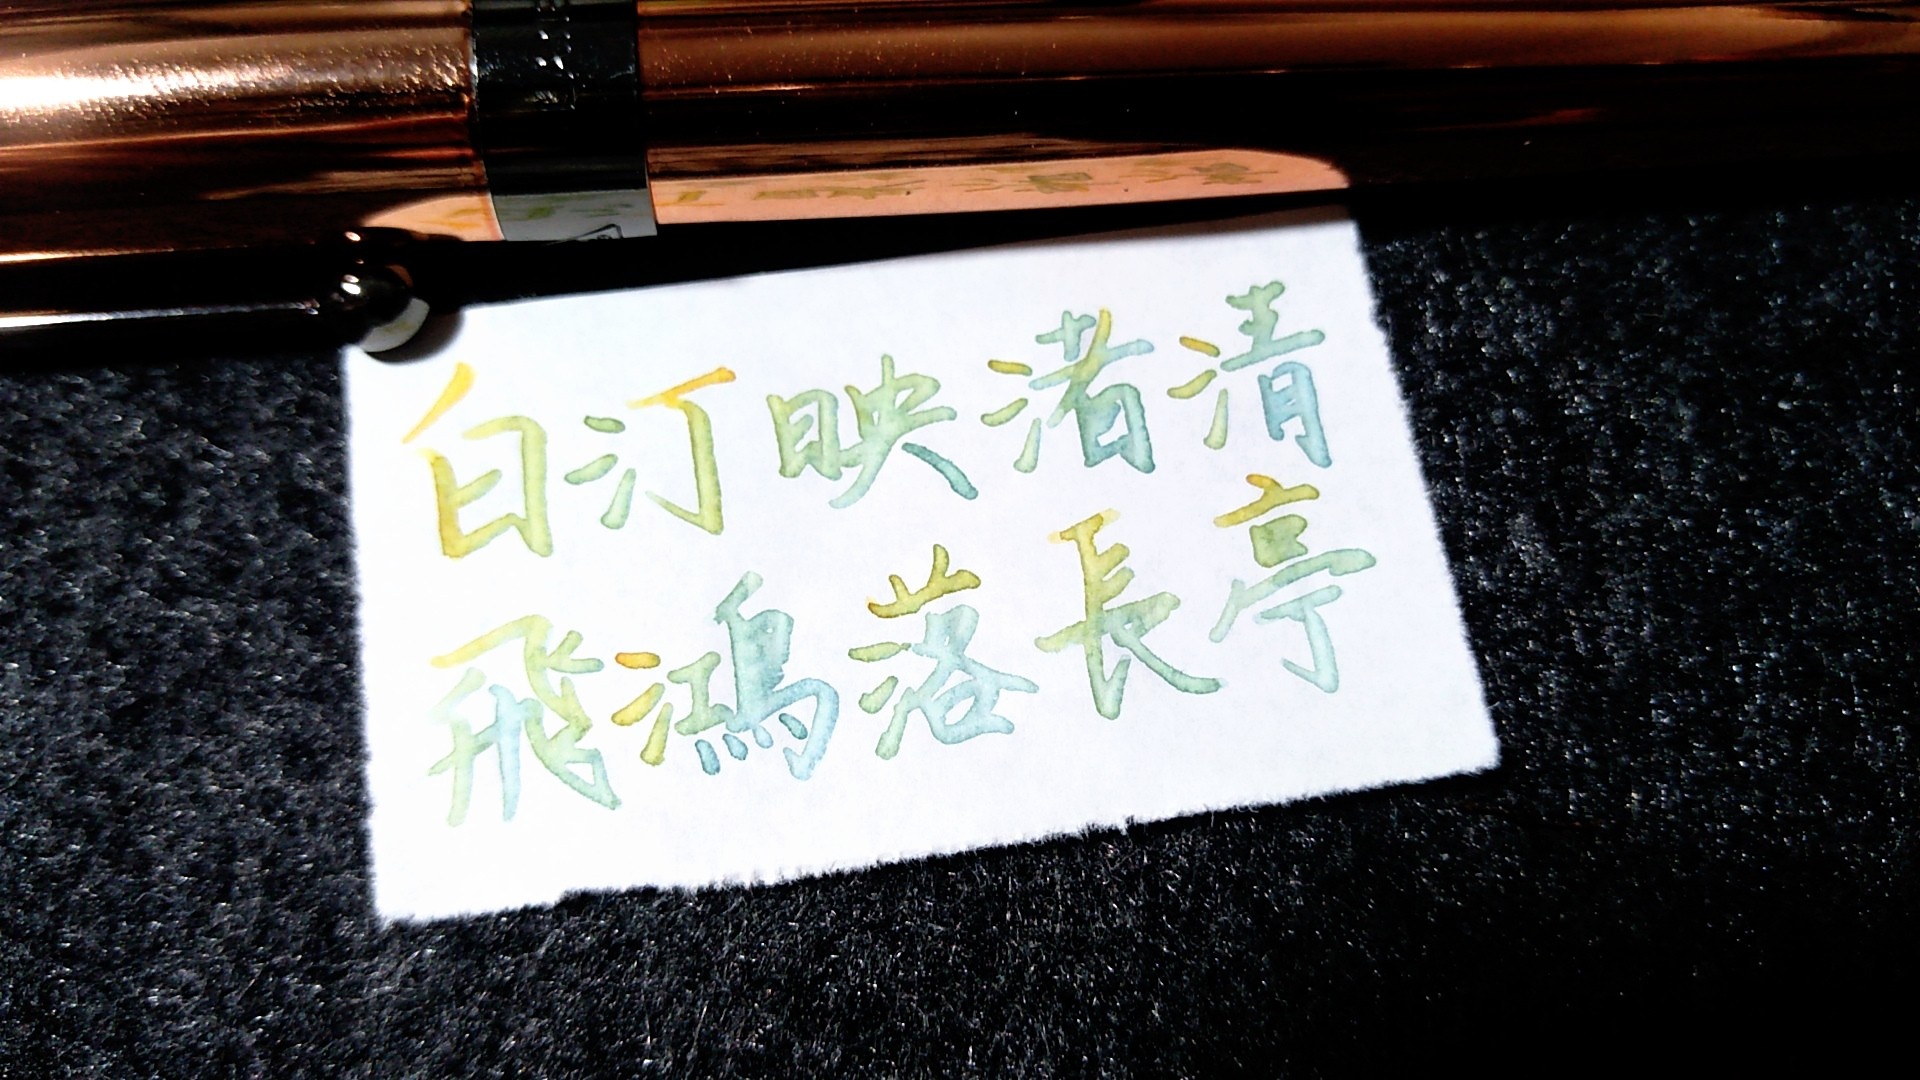 白汀映渚清
飛鴻落長亭